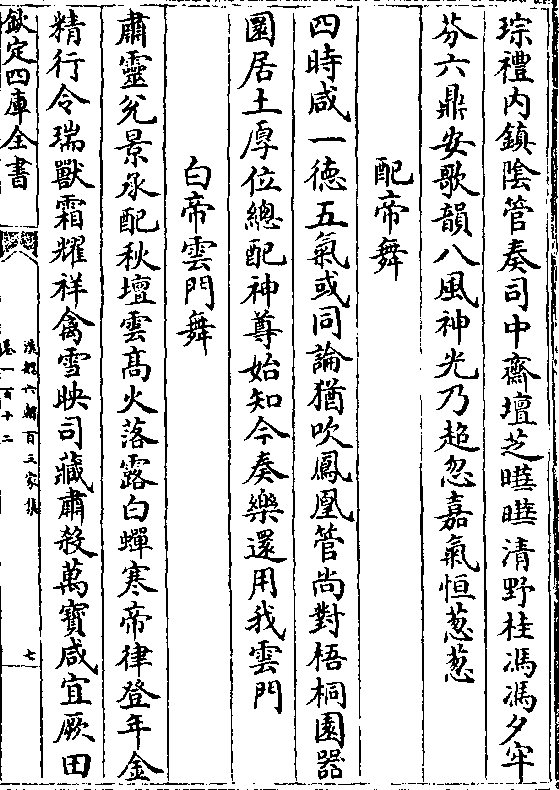 琮禮內鎮陰管奏司中齋壇芝曄曄清野桂馮馮夕牢
芬六鼎安歌韻八風神光乃超忽嘉氣恒葱葱
配帝舞
四時咸一德五氣或同論猶吹鳳凰管尚對梧桐園器
圜居土厚位總配神尊始知今奏樂還用我雲門
白帝雲門舞
肅靈兊景承配秋壇雲髙火落露白蟬寒帝律登年金
精行令瑞獸霜耀祥禽雪映司藏肅殺萬寳咸宜厥田
欽定四庫全書
漢魏六朝百三家集
卷一百十二
七